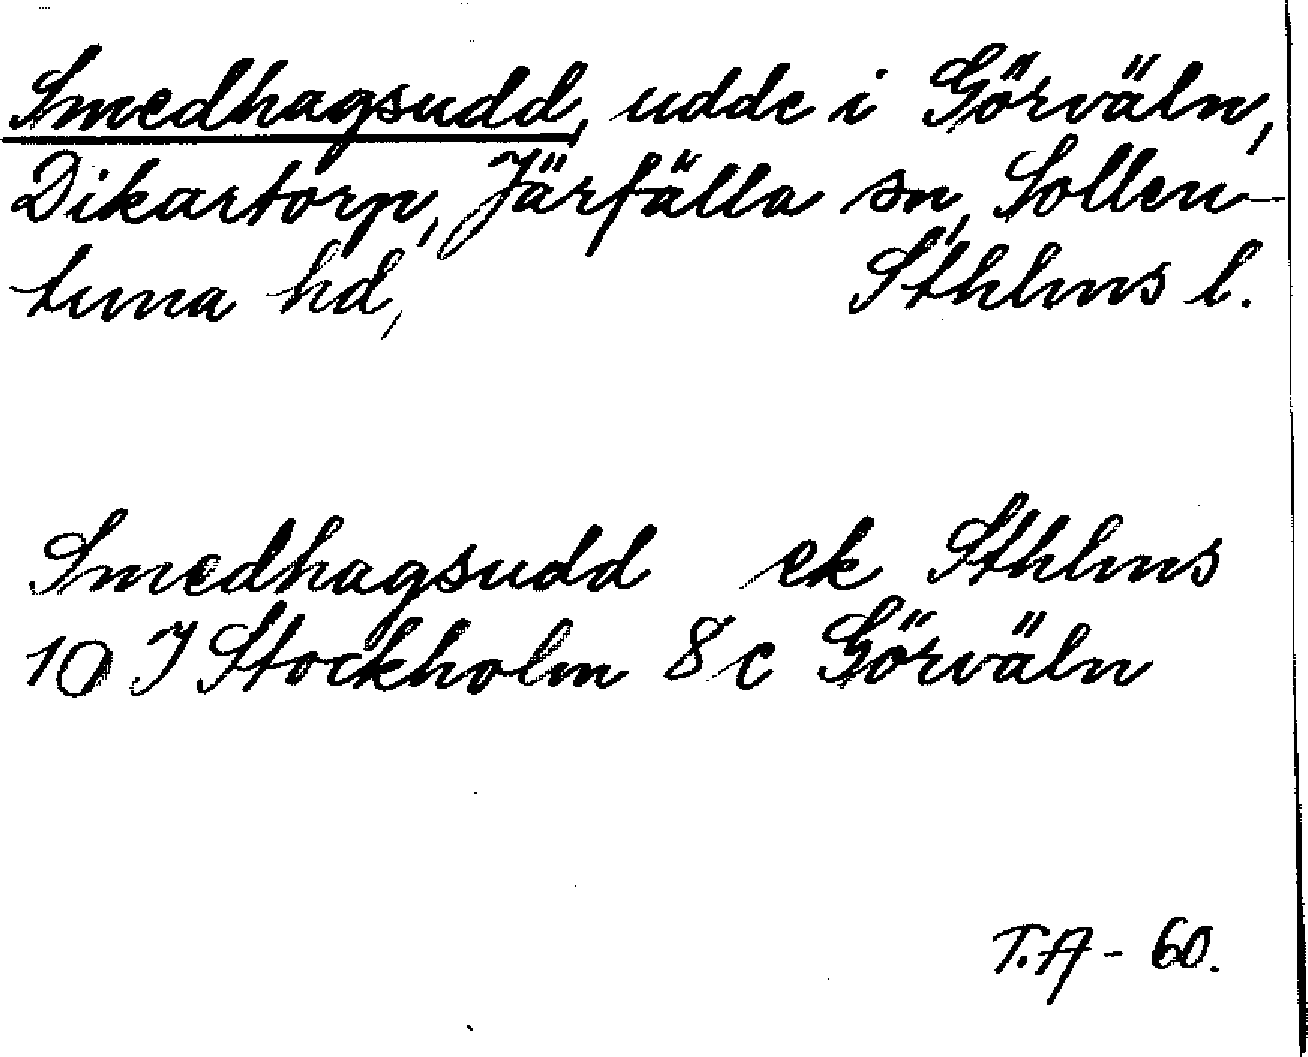 Smedhagsudd, udde i Görväln,
Dikartorp, Järfälla sn, Sollen-
tuna hd, Sthlms l.
Smedhagsudd ek Sthlms
10 I Stockholm 8 c Görväln
T.A - 60.